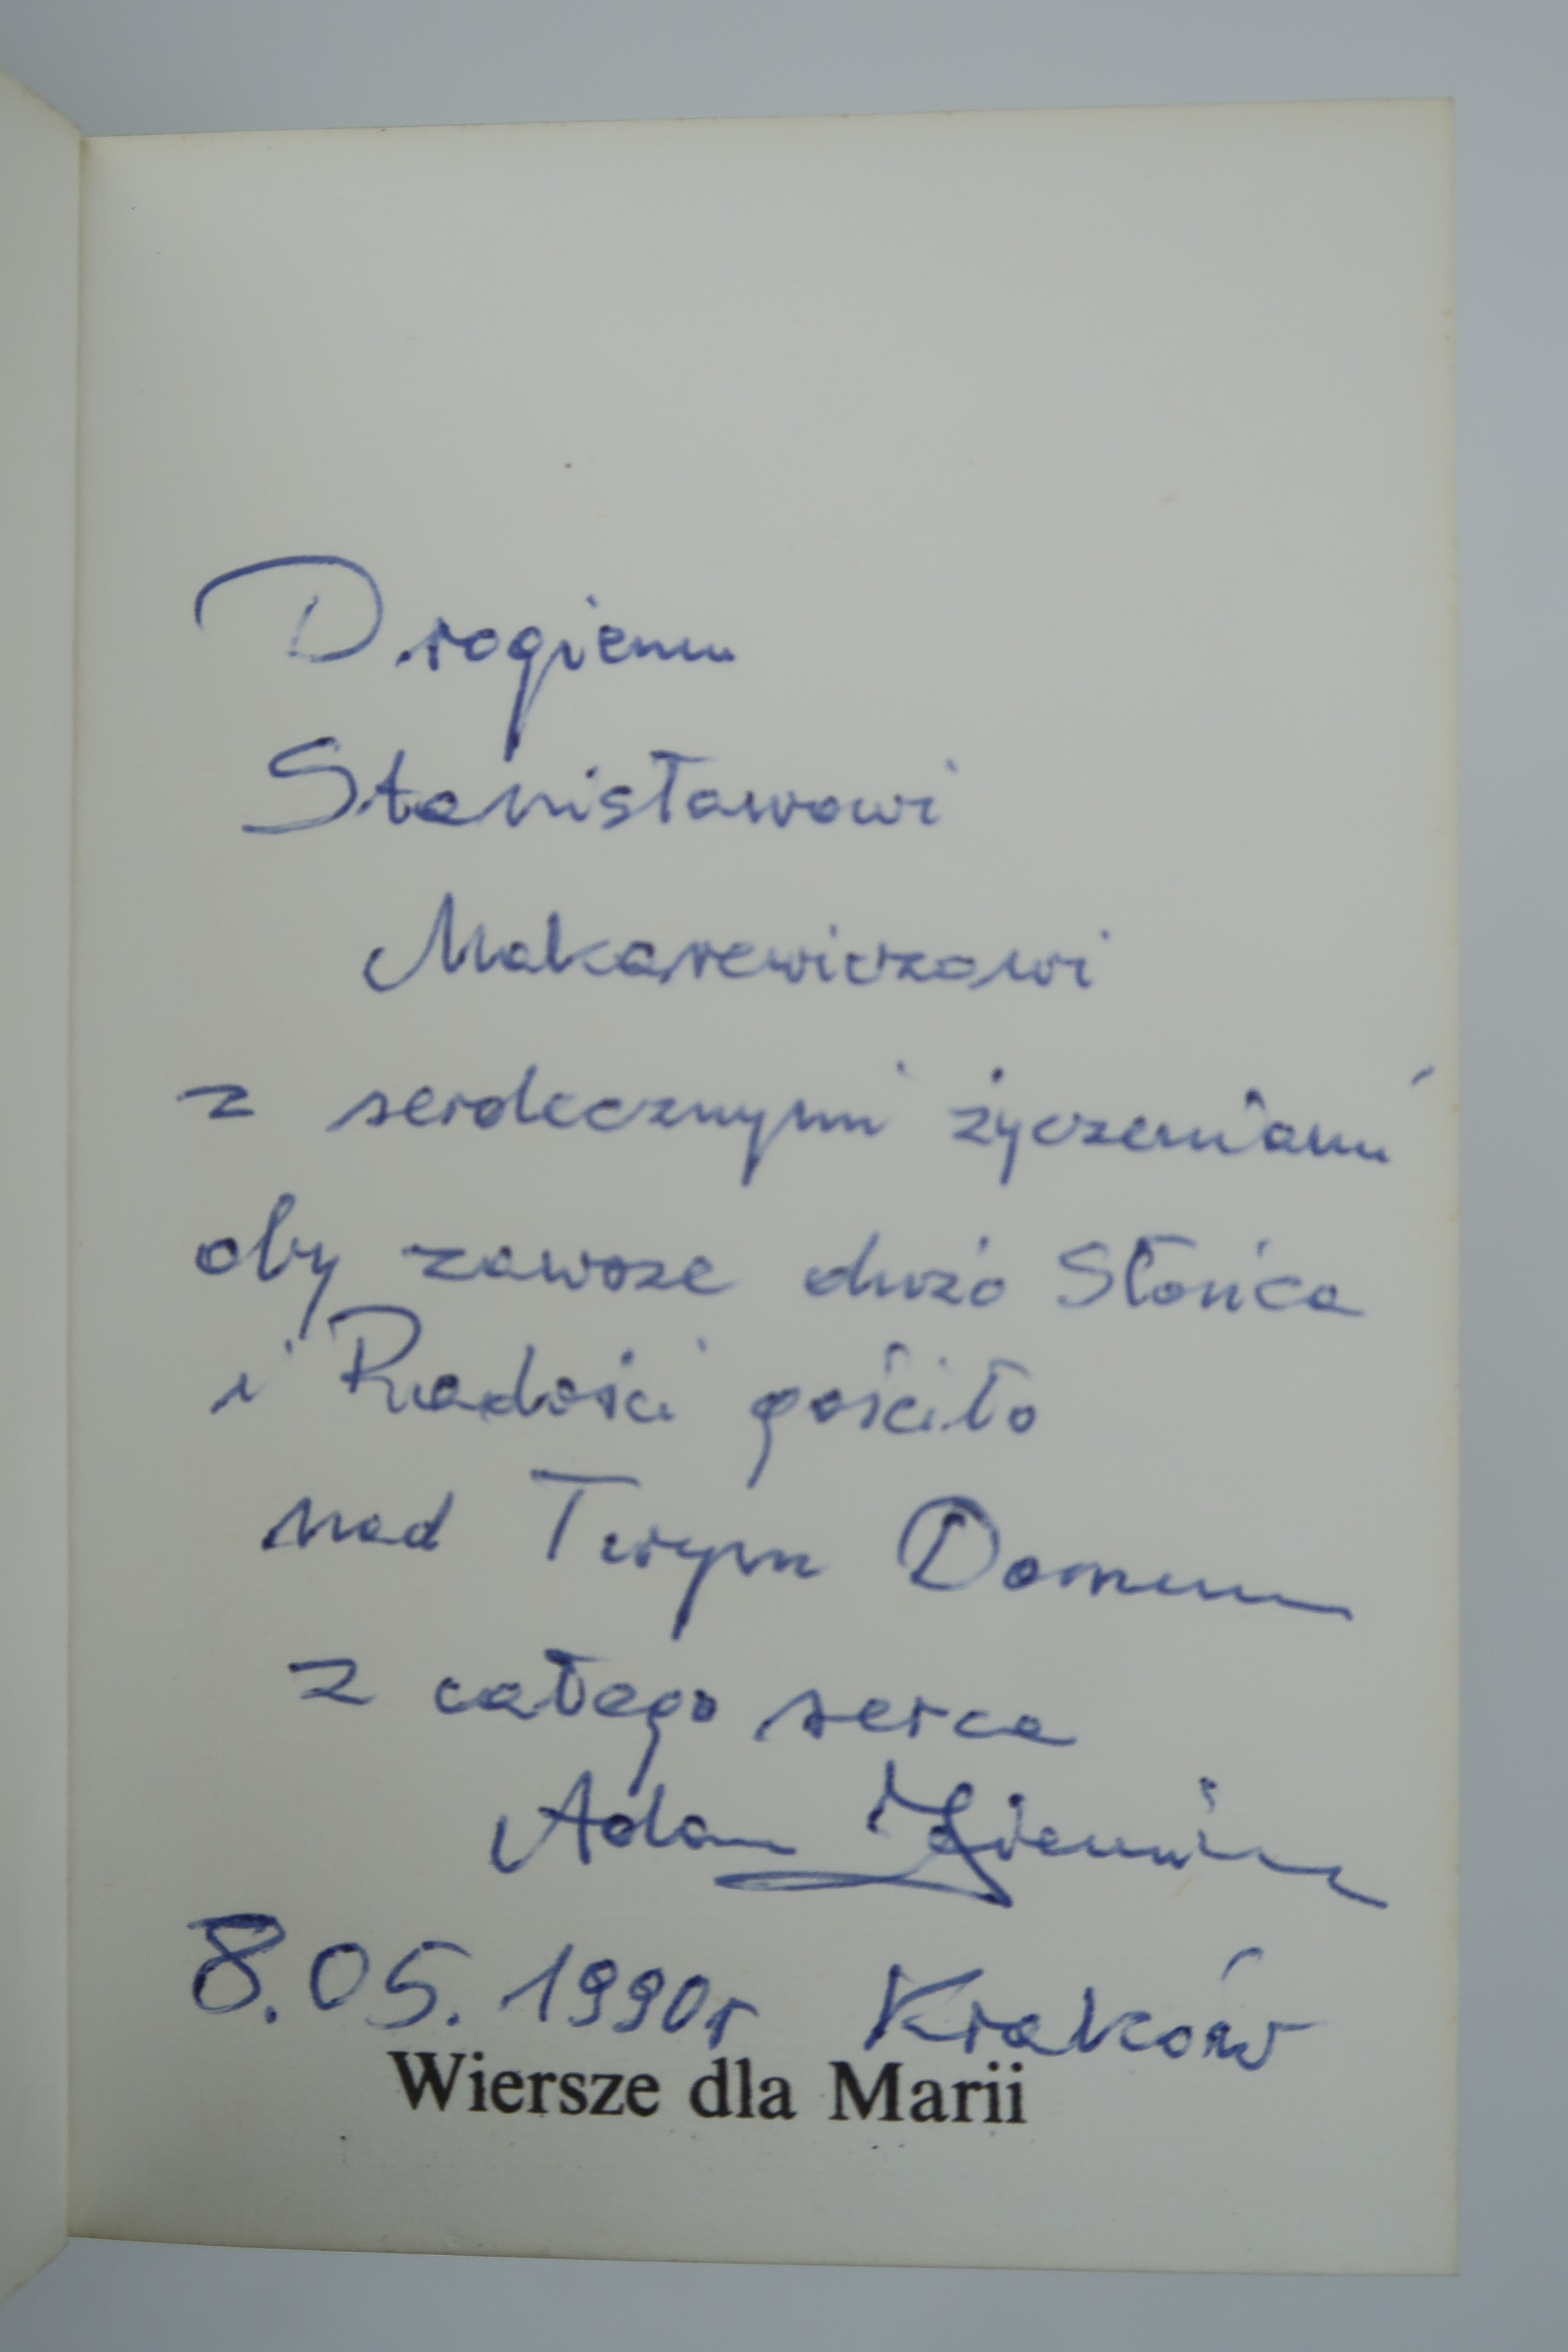 Drogiemu
Stanisławowi
Makarewiczowi
z serdecznymi życzeniami
oby zawsze dużo Słońca
i Radości gościło
nad Twym Domem
z całego serca
Adam
8.05.1990r Kraków
Wiersze dla Marii